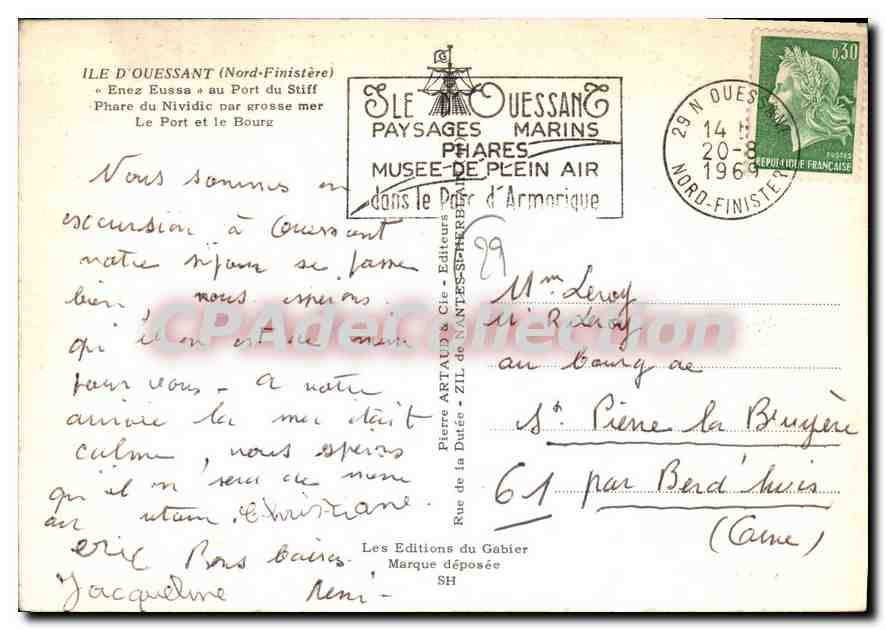 ILE D'OUESSANT (Nord-Finistère)
« Enez Eussa » au Port du Stiff
Phare du Nividic par grosse mer
Le Port et le Bourg
ISLE D'OUESSANT
PAYSAGES MARINS
PHARES
MUSEE DE PLEIN AIR
dans le Parc d'Armorique
29 N OUESSANT
14 H
20-8
1969
NORD-FINISTERE
0,30
POSTES
REPUBLIQUE FRANÇAISE
Nous sommes en
excursion à Ouessant
notre séjour se passe
bien nous esperons
qu'il en est de meme
pour vous - A notre
arrivée la mer était
calme, nous esperons
qu'il n' sera de meme
au retour. Christiane
eric Bons baisers
Jacqueline Remi -
Pierre ARTAUD & Cie - Editeurs
Rue de la Dutée - ZIL de NANTES-St-HERBLAIN
29
Mm Leroy
Mr R Leroy
au bourg de
St Pierre la Bruyère
61 par Berd'huis
(Orne)
Les Editions du Gabier
Marque déposée
SH
CPAdeCollection